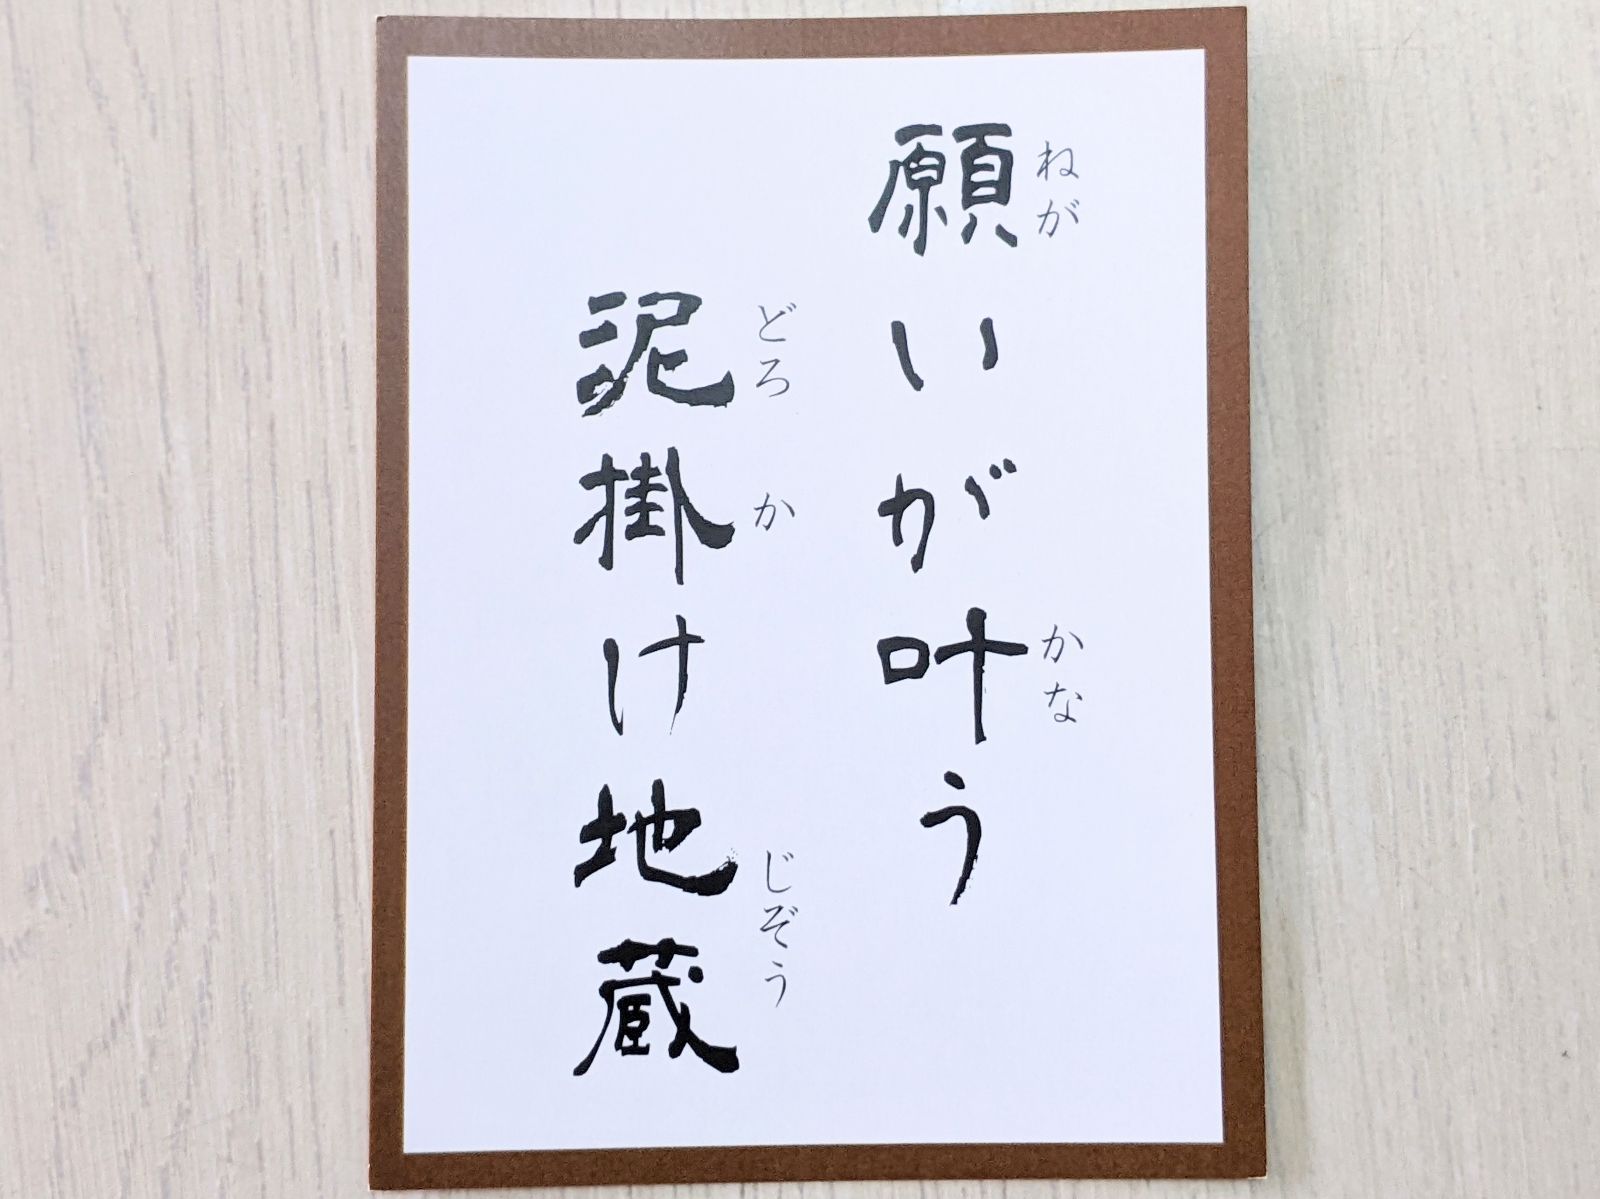 願いが叶う
ねが かな
泥掛け地蔵
どろ か じぞう